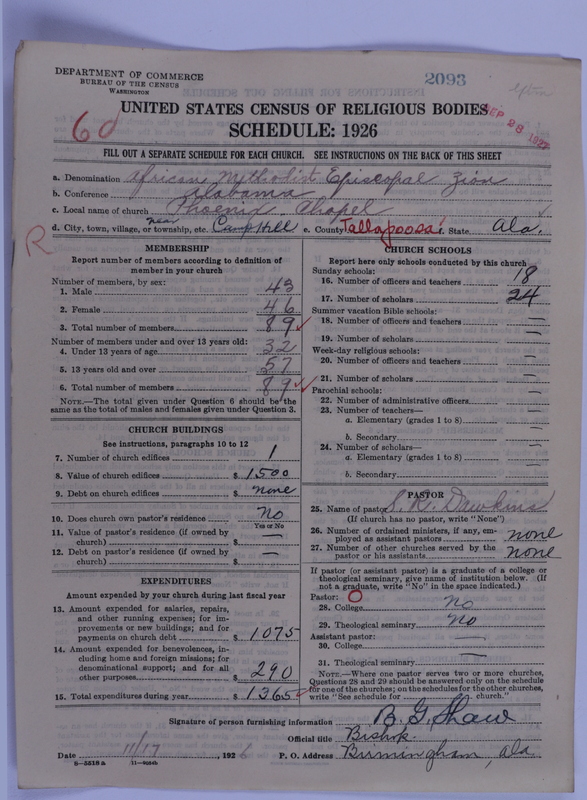 DEPARTMENT OF COMMERCE
BUREAU OF THE CENSUS
WASHINGTON
2093
SEP 28 1927
6d
UNITED STATES CENSUS OF RELIGIOUS BODIES
SCHEDULE: 1926
FILL OUT A SEPARATE SCHEDULE FOR EACH CHURCH. SEE INSTRUCTIONS ON THE BACK OF THIS SHEET
a. Denomination African Methodist Episcopal Zion
b. Conference Alabama
c. Local name of church Phoenix Chapel
d. City, town, village, or township, etc. near Camp Hill e. County Tallapoosa f. State Ala.
R
MEMBERSHIP
Report number of members according to definition of
member in your church
Number of members, by sex:
1. Male 43
2. Female 46
3. Total number of members 89
Number of members under and over 13 years old:
4. Under 13 years of age 32
5. 13 years old and over 57
6. Total number of members 89
NOTE.—The total given under Question 6 should be the
same as the total of males and females given under Question 3.
CHURCH BUILDINGS
See instructions, paragraphs 10 to 12
7. Number of church edifices 1
8. Value of church edifices $ 1500
9. Debt on church edifices $ none
10. Does church own pastor's residence No
Yes or No
11. Value of pastor's residence (if owned by
church) $ —
12. Debt on pastor's residence (if owned by
church) $ —
EXPENDITURES
Amount expended by your church during last fiscal year
13. Amount expended for salaries, repairs,
and other running expenses; for im-
provements or new buildings; and for
payments on church debt $ 1075
14. Amount expended for benevolences, in-
cluding home and foreign missions; for
denominational support; and for all
other purposes $ 290
15. Total expenditures during year $ 1365
CHURCH SCHOOLS
Report here only schools conducted by this church
Sunday schools:
16. Number of officers and teachers 18
17. Number of scholars 24
Summer vacation Bible schools:
18. Number of officers and teachers —
19. Number of scholars —
Week-day religious schools:
20. Number of officers and teachers —
21. Number of scholars —
Parochial schools:
22. Number of administrative officers —
23. Number of teachers—
a. Elementary (grades 1 to 8) —
b. Secondary —
24. Number of scholars—
a. Elementary (grades 1 to 8) —
b. Secondary —
PASTOR
25. Name of pastor S. R. Dawkins
(If church has no pastor, write "None")
26. Number of ordained ministers, if any, em-
ployed as assistant pastors none
27. Number of other churches served by the
pastor or his assistants none
If pastor (or assistant pastor) is a graduate of a college or
theological seminary, give name of institution below. (If
not a graduate, write "No" in the space indicated.)
Pastor: O
28. College No
29. Theological seminary No
Assistant pastor:
30. College —
31. Theological seminary —
NOTE.—Where one pastor serves two or more churches,
Questions 28 and 29 should be answered only on the schedule
for one of the churches; on the schedules for the other churches,
write "See schedule for church."
Signature of person furnishing information B. G. Shaw
Official title Bishop
Date 11/17, 1926 P. O. Address Birmingham, Ala
8—5518a 11—9064b